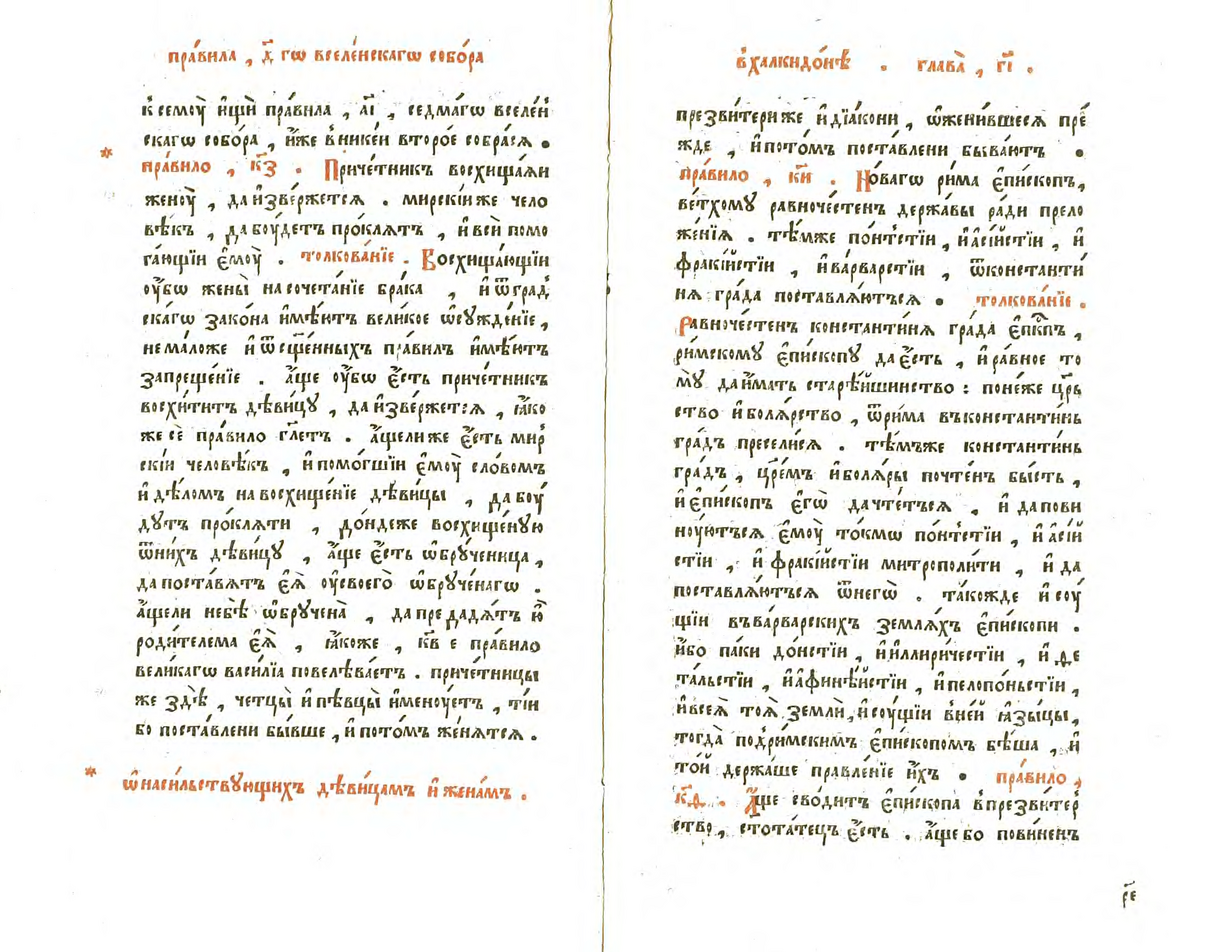 пра́вила , д҃ гѡ вселе́нскагѡ собо́ра
к̾ семоу̀ и҆щѝ пра́вила , а҃і , седма́гѡ вселе́н
скагѡ собо́ра , и҆́же в̾нике́и второ́е собра́сѧ .
* пра́вило , к҃з . Приче́тникъ восхища́ѧи
женоу̀ , да и҆зве́ржетсѧ . мирскі́и же чело
вѣ́къ , да боу́детъ про́клѧтъ , и҆ всѝ помо
га́ющїи є҆моу̀ . толкова́нїе . Восхища́ющїи
оу҆́бѡ жены̀ на сочета́нїе бра́ка , и҆ ѿ град̾
скагѡ зако́на и҆мѣ́ютъ вели́кое ѡ҆сужде́нїе ,
не ма́ло же и҆ ѿ сщ҃е́нныхъ пра́вилъ и҆мѣ́ютъ
запреще́нїе . а҆́ще оу҆́бо є҆́сть приче́тникъ
восхи́титъ дѣви́цу , да и҆зве́ржетсѧ , ꙗ҆́ко
же сѐ пра́вило гл҃етъ . а҆́ще ли же є҆́сть мир̾
скі́и человѣ́къ , и҆ помо́гшїи є҆моу̀ сло́вомъ
и҆ дѣ́ломъ на восхище́нїе дѣви́цы , да боу́
дутъ про́клѧти , до́ндеже восхище́ную
ѿ ни́хъ дѣви́цу , а҆́ще є҆́сть ѡ҆бру́ченица ,
да поста́вѧтъ є҆ѧ̀ оу҆ своего̀ ѡ҆бруче́нагѡ .
а҆́ще ли не бѣ̀ ѡ҆бруче́на , да предадѧ́тъ ю҆̀
роди́телема є҆ѧ̀ , ꙗ҆́коже , к҃в е пра́вило
вели́кагѡ васи́лїа повелѣва́етъ . приче́тницы
же здѣ̀ , четцы̀ и҆ пѣвцы̀ и҆мену́етъ , ті́и
бо поста́влени бы́вше , и҆ пото́мъ же́нѧтсѧ .
* ѡ҆ наси́льствующихъ дѣви́цамъ и҆ жена́мъ .
в̾ халкидо́нѣ . глава̀ , г҃і .
презви́тери же и҆ дїа́кони , ѡ҆жени́вшесѧ пре́
жде , и҆ пото́мъ поста́влени быва́ютъ .
пра́вило , к҃и . Но́вагѡ ри́ма є҆пи́скопъ ,
ве́тхому равноче́стенъ держа́вы ра́ди прело
же́нїѧ . тѣ́мже по́нтстїи , и҆ а҆сі́йстїи , и҆
фракі́йстїи , и҆ ва́рварстїи , ѿ константи́
нѧ гра́да поставлѧ́ютьсѧ . толкова́нїе .
Равноче́стенъ константи́нѧ гра́да є҆пк҃пъ ,
ри́мскому є҆пи́скопу да є҆́сть , и҆ ра́вное то
му̀ да и҆́мать старѣ́ишинство : поне́же цр҃ь
ство и҆ болѧ́рство , ѿ ри́ма въ константи́нь
гра́дъ пресели́сѧ . тѣ́мъже константи́нь
гра́дъ , цр҃е́мъ и҆ болѧ́ры почте́нъ бы́сть ,
и҆ є҆пи́скопъ є҆гѡ̀ да чте́тьсѧ , и҆ да пови
ну́ютьсѧ є҆моу̀ то́кмѡ по́нтстїи , и҆ а҆сі́й
стїи , и҆ фракі́йстїи митрополи́ти , и҆ да
поставлѧ́ютьсѧ ѿ негѡ̀ . та́кожде и҆ соу́
щїи въ ва́рварскихъ землѧ́хъ є҆пи́скопи .
и҆́бо па́ки до́нстїи , и҆ и҆ллири́честїи , и҆ де
та́льстїи , и҆ а҆фине́йстїи , и҆ пелопо́ньстїи ,
и҆ всеѧ̀ тоѧ̀ землѝ , и҆ соу́щїи в̾ не́й ꙗ҆зы́цы ,
тогда̀ под̾ ри́мскимъ є҆пи́скопомъ бѣ́ша , и҆
то́й держа́ше правле́нїе и҆́хъ . пра́вило ,
к҃д . А҆́ще сво́дитъ є҆пи́скопа в̾ презви́тер̾
ство , стота́тецъ є҆́сть . а҆́ще бо пови́ненъ
р҃е